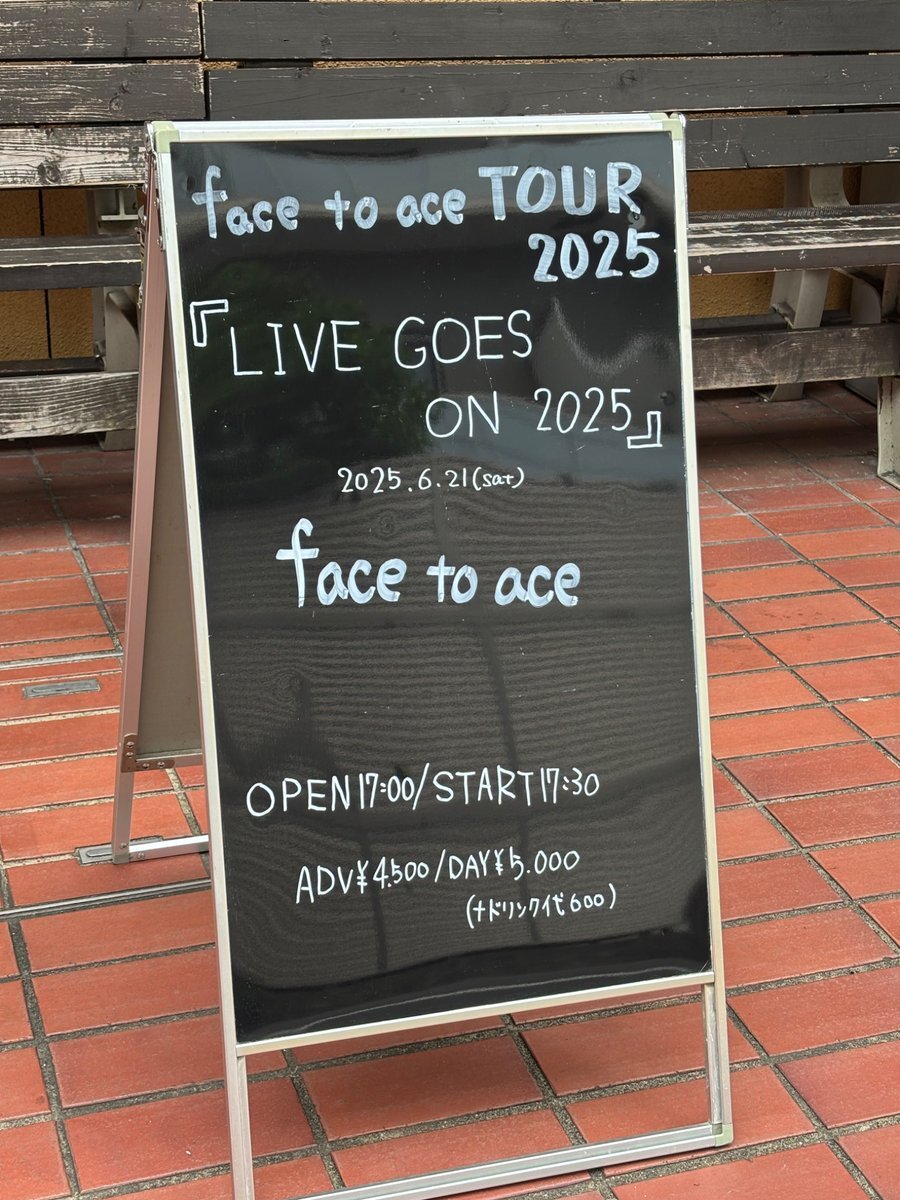 face to ace TOUR
2025
『LIVE GOES
ON 2025』
2025.6.21(sat)
face to ace
OPEN17:00/START17:30
ADV¥4.500/DAY¥5.000
(+ドリンク代600)